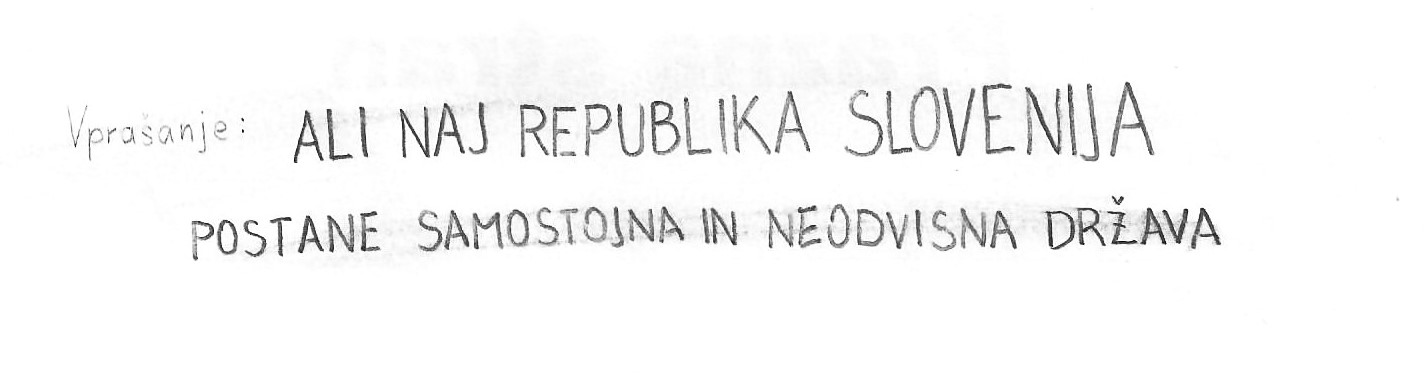 Vprašanje: ALI NAJ REPUBLIKA SLOVENIJA
POSTANE SAMOSTOJNA IN NEODVISNA DRŽAVA